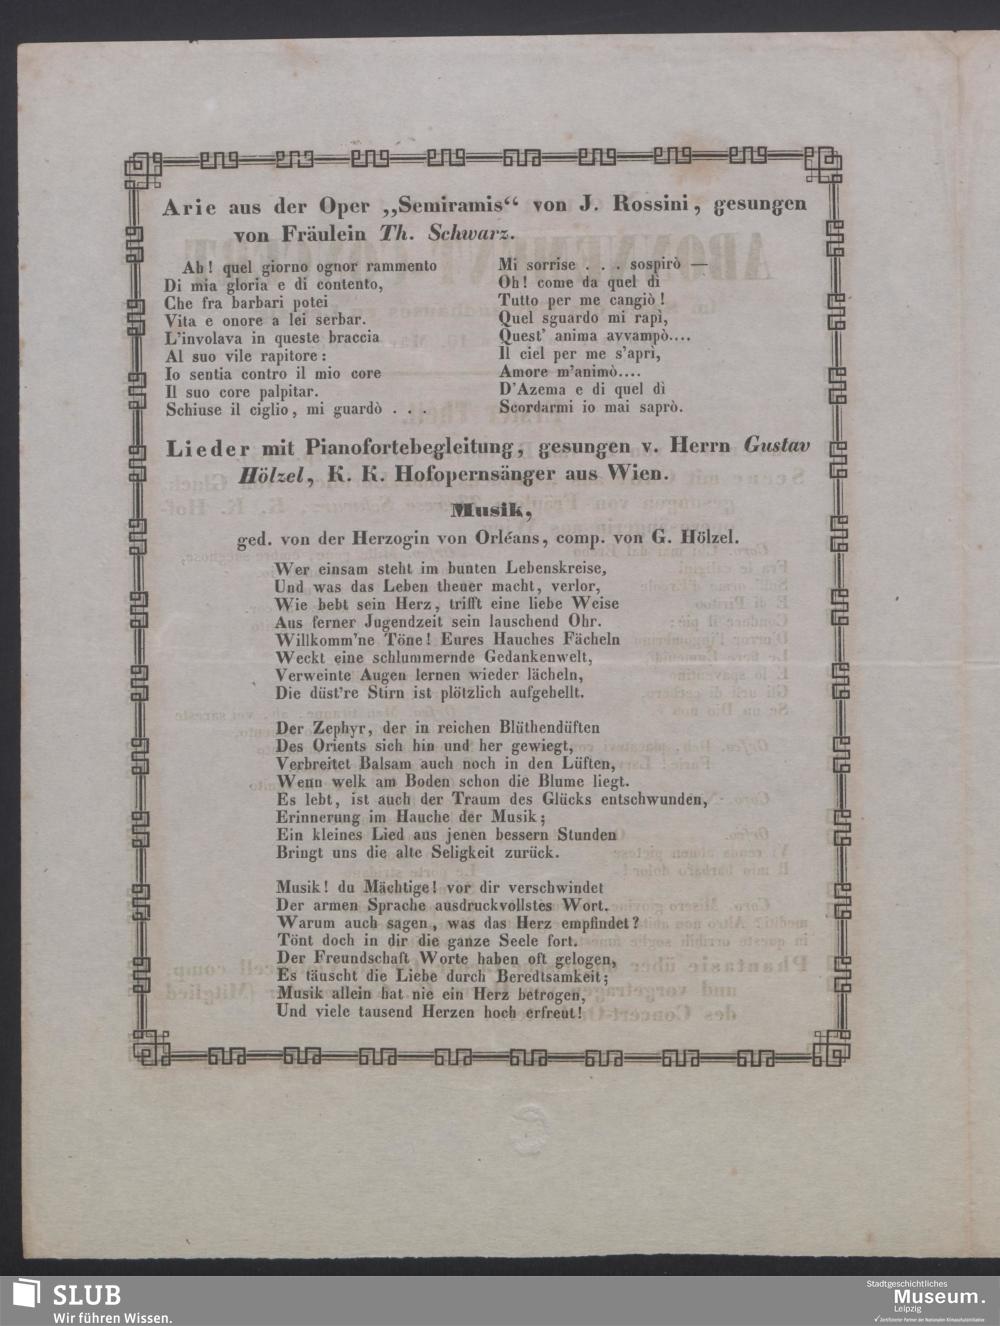 Arie aus der Oper „Semiramis“ von J. Rossini, gesungen
von Fräulein Th. Schwarz.
Ah! quel giorno ognor rammento
Di mia gloria e di contento,
Che fra barbari potei
Vita e onore a lei serbar.
L'involava in queste braccia
Al suo vile rapitore:
Io sentia contro il mio core
Il suo core palpitar.
Schiuse il ciglio, mi guardò . . .
Mi sorrise . . . sospirò —
Oh! come da quel dì
Tutto per me cangiò!
Quel sguardo mi rapì,
Quest' anima avvampò....
Il ciel per me s'aprì,
Amore m'animò....
D'Azema e di quel dì
Scordarmi io mai saprò.
Lieder mit Pianofortebegleitung, gesungen v. Herrn Gustav
Hölzel, K. K. Hofopernsänger aus Wien.
Musik,
ged. von der Herzogin von Orléans, comp. von G. Hölzel.
Wer einsam steht im bunten Lebenskreise,
Und was das Leben theuer macht, verlor,
Wie bebt sein Herz, trifft eine liebe Weise
Aus ferner Jugendzeit sein lauschend Ohr.
Willkomm'ne Töne! Eures Hauches Fächeln
Weckt eine schlummernde Gedankenwelt,
Verweinte Augen lernen wieder lächeln,
Die düst're Stirn ist plötzlich aufgehellt.
Der Zephyr, der in reichen Blüthendüften
Des Orients sich hin und her gewiegt,
Verbreitet Balsam auch noch in den Lüften,
Wenn welk am Boden schon die Blume liegt.
Es lebt, ist auch der Traum des Glücks entschwunden,
Erinnerung im Hauche der Musik;
Ein kleines Lied aus jenen bessern Stunden
Bringt uns die alte Seligkeit zurück.
Musik! du Mächtige! vor dir verschwindet
Der armen Sprache ausdruckvollstes Wort.
Warum auch sagen, was das Herz empfindet?
Tönt doch in dir die ganze Seele fort.
Der Freundschaft Worte haben oft gelogen,
Es täuscht die Liebe durch Beredtsamkeit;
Musik allein hat nie ein Herz betrogen,
Und viele tausend Herzen hoch erfreut!
SLUB
Wir führen Wissen.
Stadtgeschichtliches
Museum.
Leipzig
Zertifizierter Partner der Nationalen Klimaschutzinitiative